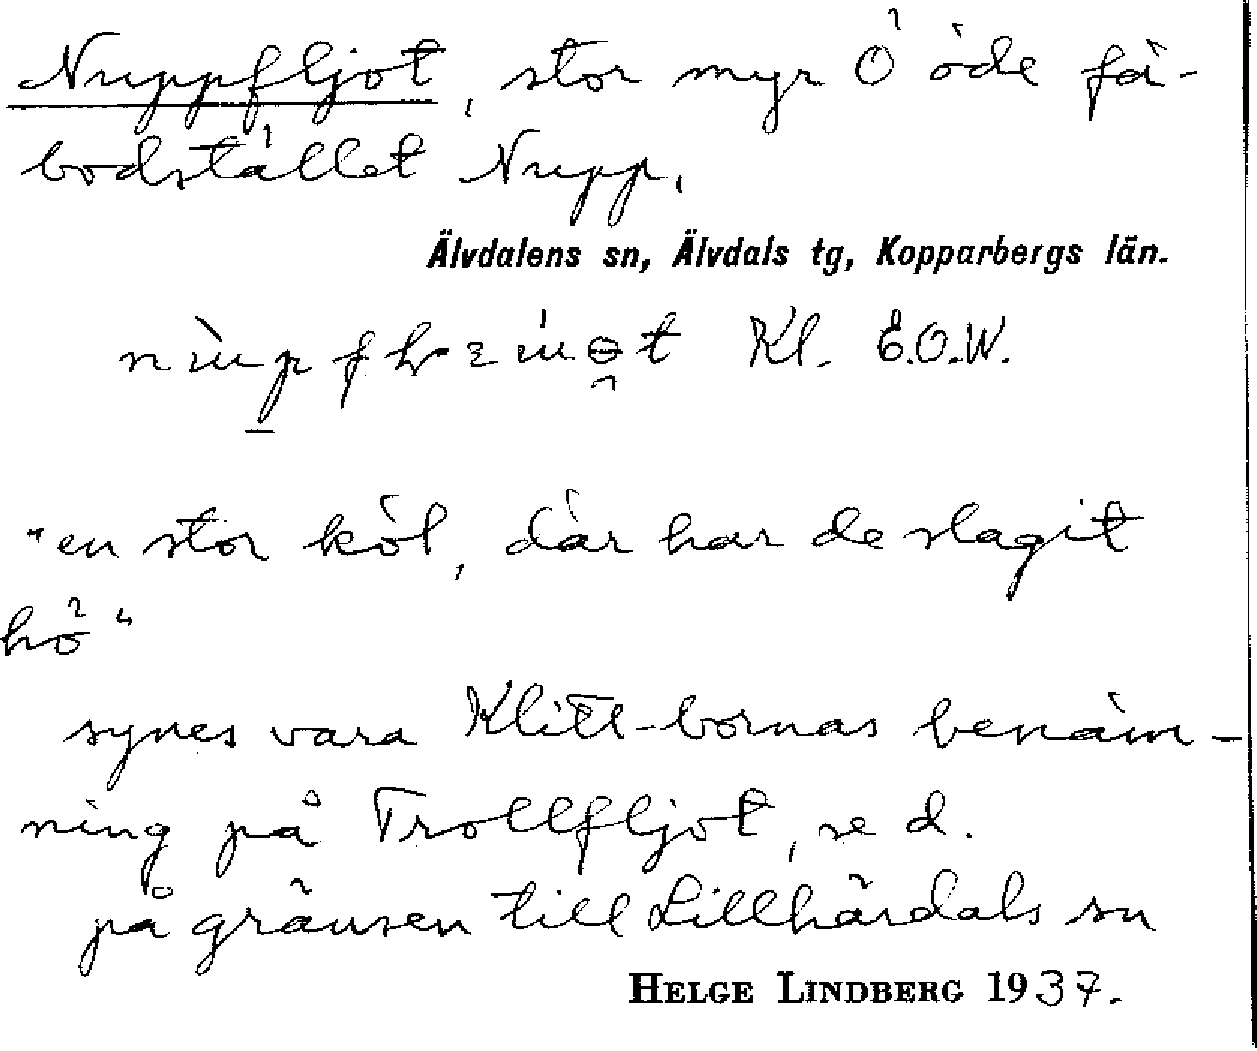 Nuppfljot, stor myr Ö öde fä-
bodstället Nupp.
Älvdalens sn, Älvdals tg, Kopparbergs län.
Kl. E.O.W.
"en stor köl, där har de slagit
hö"
synes vara Klitt-bornas benäm-
ning på Trollfljot, se d.
på gränsen till Lillhärdals sn
HELGE LINDBERG 1937.